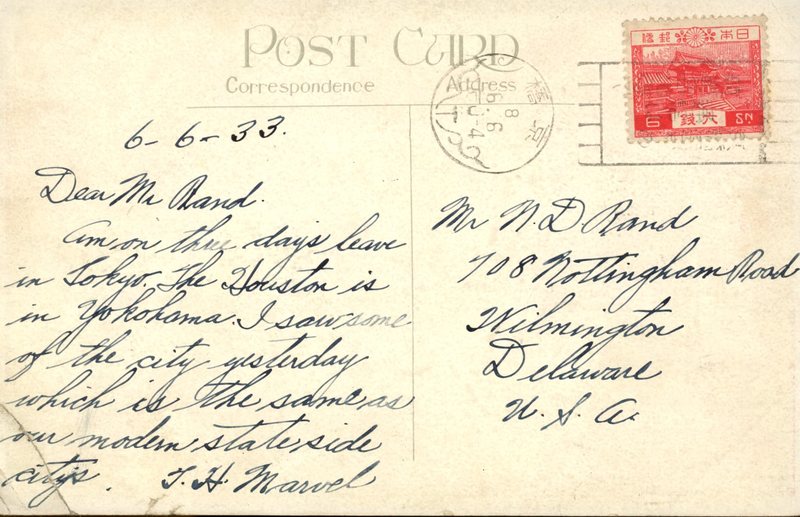 POST CARD
Correspondence
Address
橋京
8.6.6
日本郵便
6 六銭 SN
6-6-33.
Dear Mr Rand.
Am on three days leave
in Tokyo. The Houston is
in Yokohama. I saw some
of the city yesterday
which is the same as
our modern state side
citys. T. H. Marvel
Mr N. D Rand
708 Nottingham Road
Wilmington
Delaware
U. S. A.